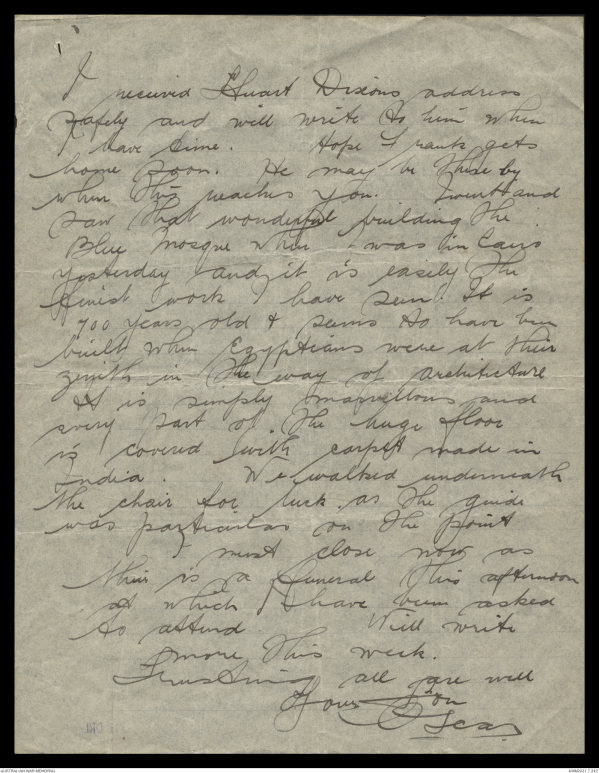 I received Stuart Dixons address
safely and will write to him when
I have time. Hope Frank gets
home soon. He may be there by
when this reaches you. I went and
saw that wonderful building the
Blue Mosque when I was in Cairo
yesterday and it is easily the
finest work I have seen. It is
700 years old & seems to have been
built when Egyptians were at their
zenith in the way of architecture
It is simply marvellous and
every part of the huge floor
is covered with carpet made in
India. We walked underneath
the chair for luck as the guide
was particular on the point
I must close now as
their is a funeral this afternoon
at which I have been asked
to attend. Will write
more this week.
Trusting all are well
Your Son
Oscar
AUSTRALIAN WAR MEMORIAL